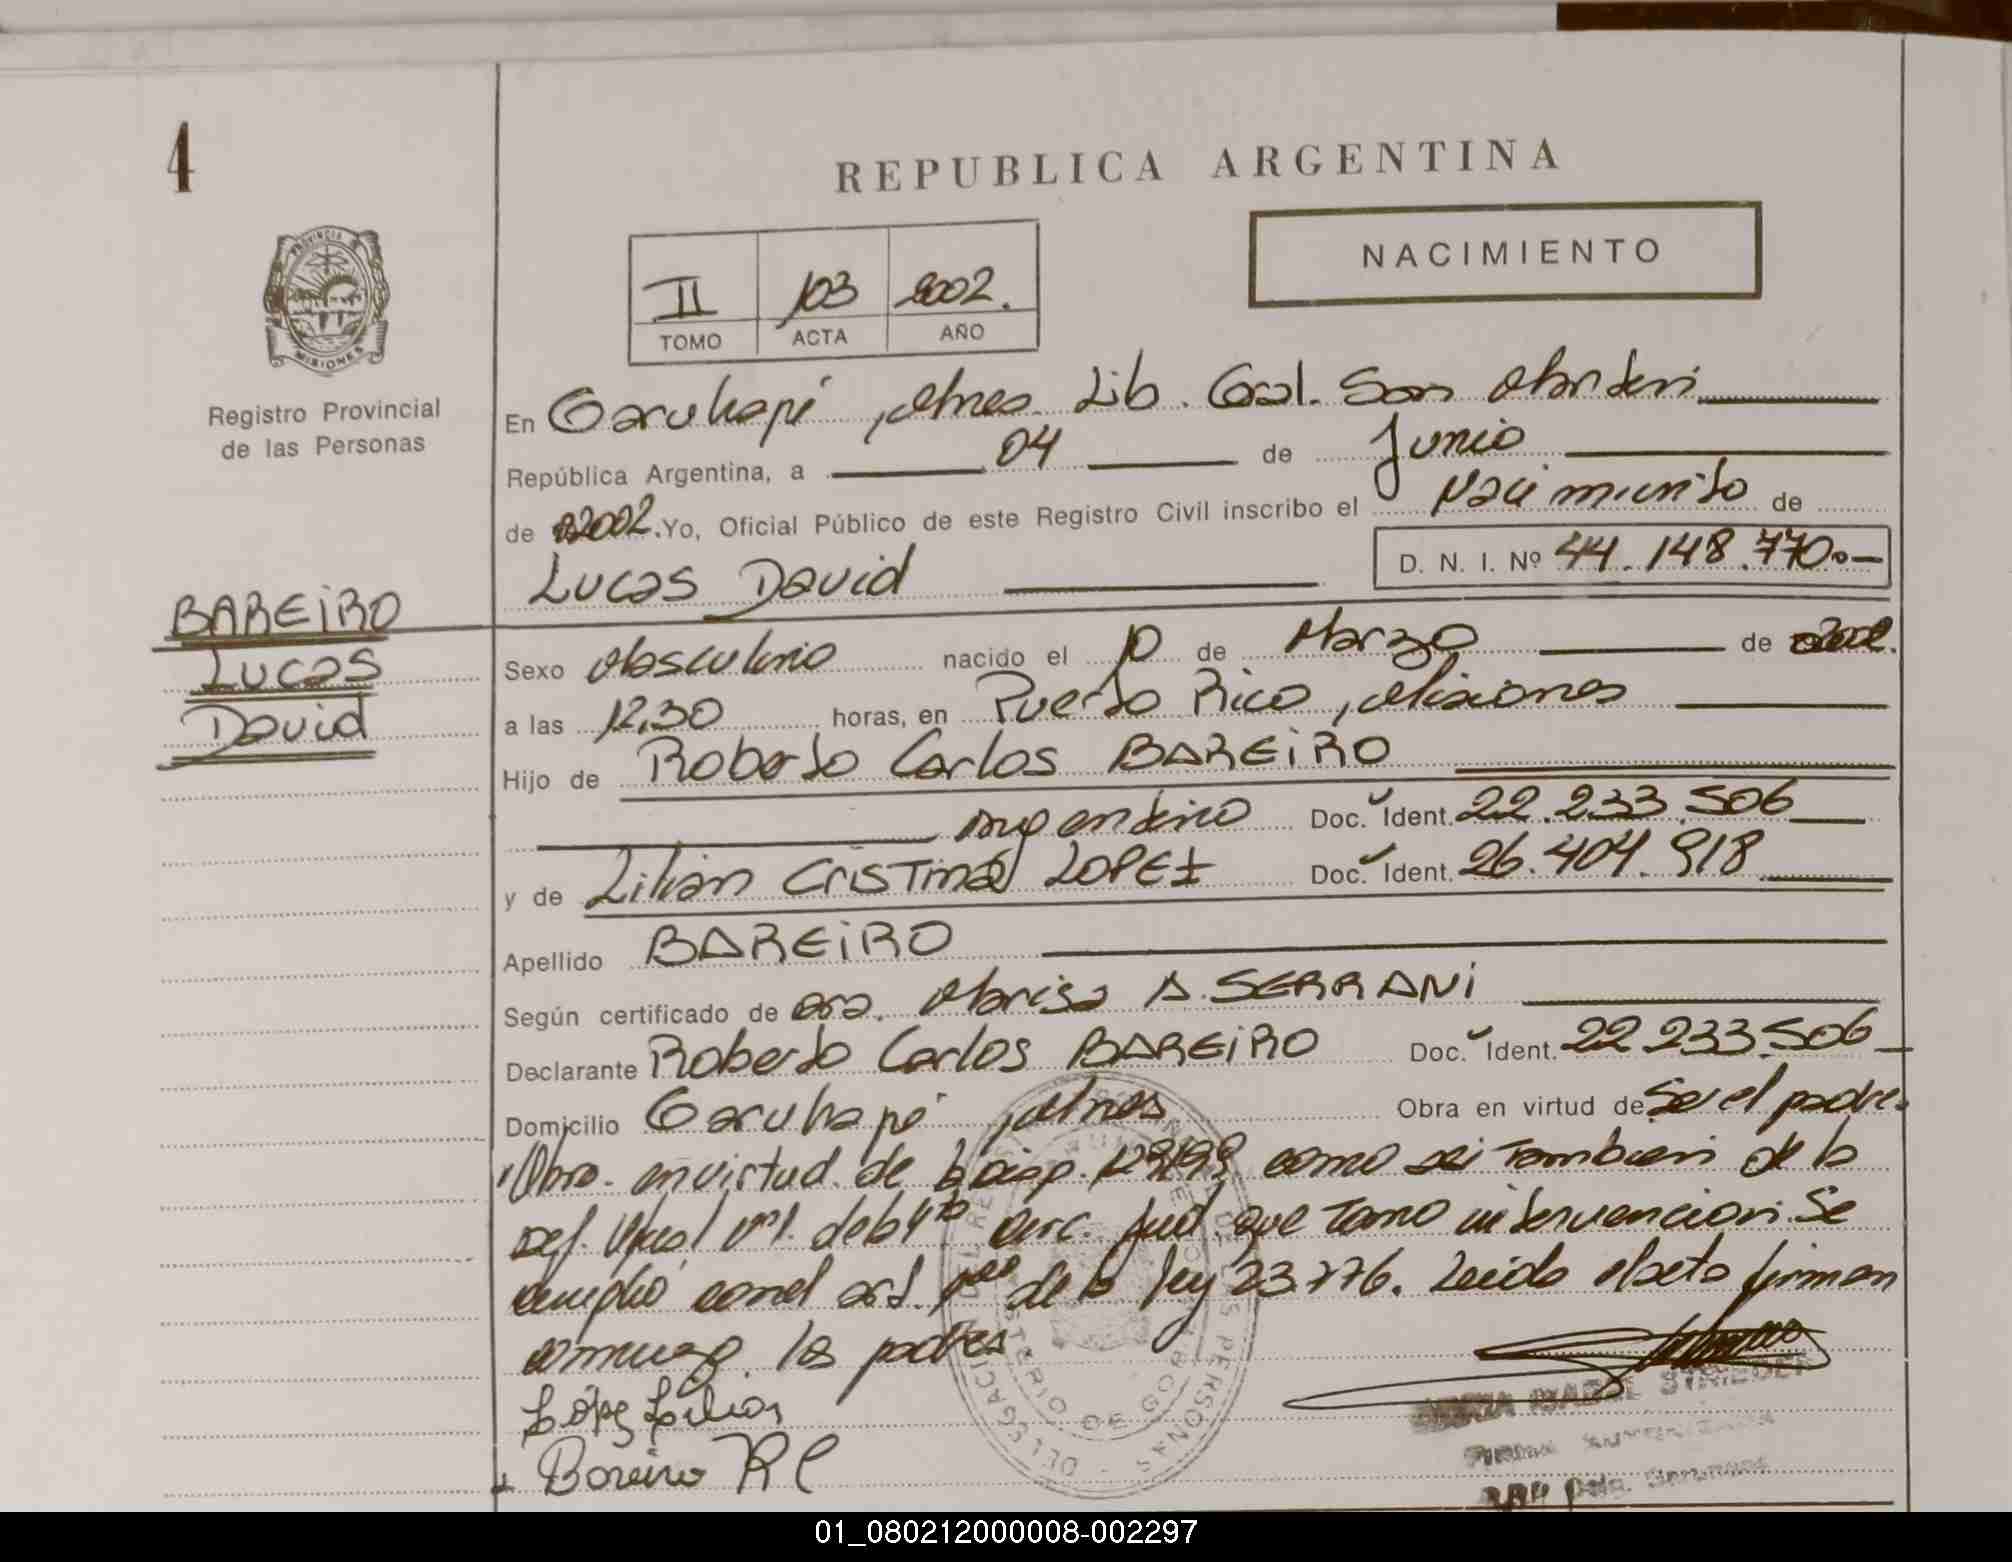 4
REPUBLICA ARGENTINA
NACIMIENTO
PROVINCIA DE
MISIONES
Registro Provincial
de las Personas
II 103 2002.
TOMO ACTA AÑO
En Garuhapé, Mnes. Lib. Gral. San Martin
República Argentina, a 04 de Junio
de 2002. Yo, Oficial Público de este Registro Civil inscribo el Nacimiento de
D. N. I. Nº 44.148.770.-
Lucas David
BAREIRO
Lucas
David
Sexo Masculino nacido el 10 de Marzo de 2002.
a las 12,30 horas, en Puerto Rico, Misiones
Hijo de Roberto Carlos BAREIRO
Argentino Doc. Ident. 22.233.506
y de Lilian Cristina LOPEZ Doc. Ident. 26.404.918
Apellido BAREIRO
Según certificado de Marisa A. SERRANI
Declarante Roberto Carlos BAREIRO Doc. Ident. 22.233.506
Domicilio Garuhapé, Mnes Obra en virtud de Ser el padre.
en virtud de la disp. como asi tambien de la
Def. de la 4ta Circ. Jud. que Tomo intervencion. Se
cumplió con el art. 1ro de la ley 23.776. Leida el acta firman
conmigo los padres
López Lilian
Bareiro RC
01_080212000008-002297